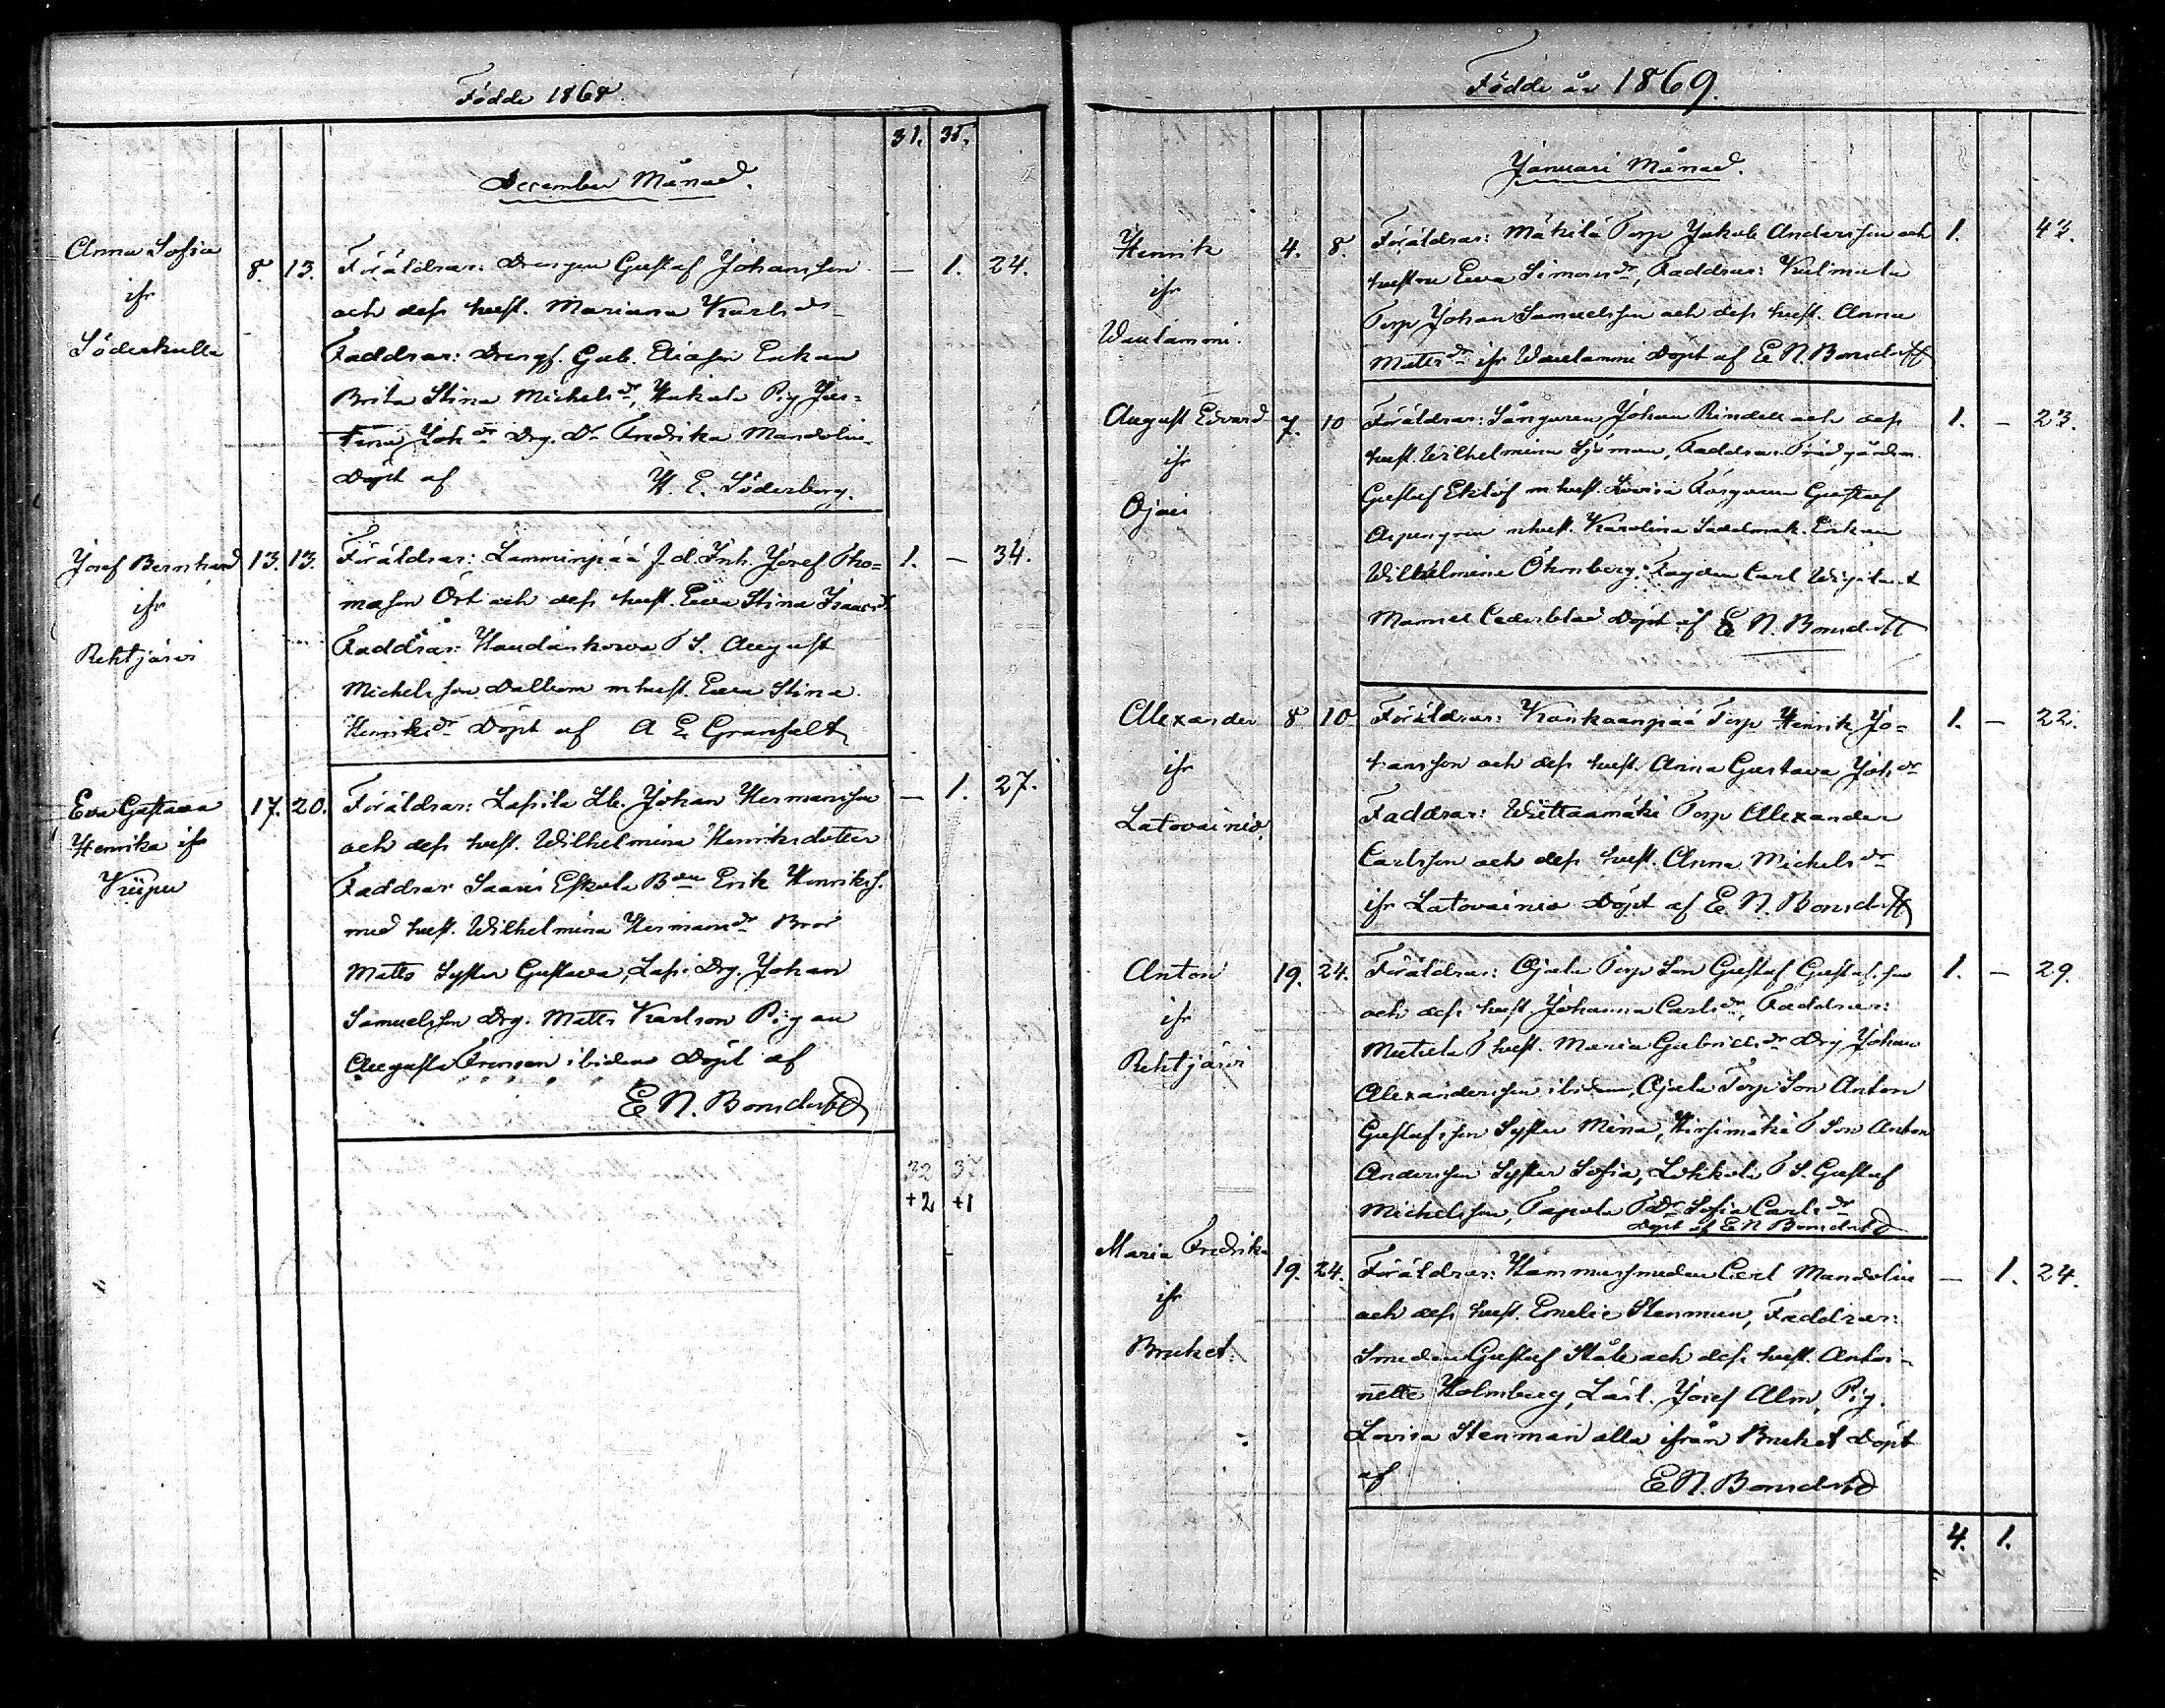 Födde 1868.
31. 35.
December Månad.
Anna Sofia
ifr
Söderkulla
8. 13.
Föräldrar: Drengen Gustaf Johansson
och dess hust. Mariana Karlsdr
Faddrar: Drengs. Gab. Eliasson Enkan
Brita Stina Michelsdr, Hakala Pig Jus=
tina Johdr Drg. Dr Fredrika Mandolin
Döpt af H. E. Söderberg.
— 1. 24.
Josef Bernhard
ifr
Rehtjärvi
13. 13.
Föräldrar: Lamminpää J.d. Inh. Josef Tho=
masson Ört och dess hust. Ewa Stina Isaacsd.
Faddrar: T S. August
Michelsson Dalbom m hust. Ewa Stina
Henriksdr Döpt af A E Granfelt
1. — 34.
Eva Gustava
Henrika ifr
Kiipu
17. 20.
Föräldrar: Lassila Lb. Johan Hermansson
och dess hust. Wilhelmina Henriksdotter
Faddrar Saaris Eskola Bdn Erik Henrikss.
med hust. Wilhelmina Hermansdr Bror
Matts Syster Gustava, Lassi Drg. Johan
Samuelsson Drg. Matts Karlson Pigan
Augusta Fransen ibidem Döpt af
E N. Bonsdorff
— 1. 27.
32 37
+2 +1
Födde år 1869.
Januari Månad.
Henrik
ifr
Waulammi.
4. 8.
Föräldrar: Mäkilä Torp Jakob Andersson och
hustru Ewa Simonsdr, Faddrar: Kulmala
Torp Johan Samuelsson och dess hust. Anna
Mattsdr ifr Waulammi Döpt af E N. Bonsdorff
1. 43.
August Edvard
ifr
Ojais
7. 10
Föräldrar: Johan Rindell och dess
hust. Wilhelmina Sjöman, Faddrar. Trädgårdsm.
Gustaf Eklöf m hust. Lovisa Färgaren Gustaf
Aspengren m hust. Karolina Sadelmak. Enkan
Wilhelmina Öhrnberg, Fogden Carl Wigilant
Mamsel Cederblad Döpt af E N. Bonsdorff
1. — 23.
Alexander
ifr
Latovainio
8 10
Föräldrar: Kankaanpää Torp Henrik Jo=
hansson och dess hust. Anna Gustava Johdr
Faddrar: Wiittaamäki Torp Alexander
Carlsson och dess hust. Anna Michelsdr
ifr Latovainio Döpt af E N. Bonsdorff
1. — 22.
Anton
ifr
Rehtjärvi
19. 24.
Föräldrar: Ojala Torp Son Gustaf Gustafsson
och dess hust Johanna Carlsdr, Faddrar:
Mattila T hust. Maria Gabrielsdr Drg Johan
Alexandersson ibidem, Ojala Torp Son Anton
Gustafsson Syster Mina, Hirsimäki T Son Anton
Andersson Syster Sofia, Lökkälä T S. Gustaf
Michelsson, Tapola T Dr Sofia Carlsdr
Döpt af E N Bonsdorff
1. — 29.
Maria Fredrika
ifr
Bruket.
19. 24.
Föräldrar: Hammarsmeden Carl Mandolin
och dess hust. Emelie Stenman, Faddrar:
Smeden Gustaf Ståle och dess hust. Antoi-
nette Holmberg, Lärl. Josef Alm, Pig.
Lovisa Stenman alla ifrån Bruket Döpt
af E N. Bonsdorff
— 1. 24.
4. 1.